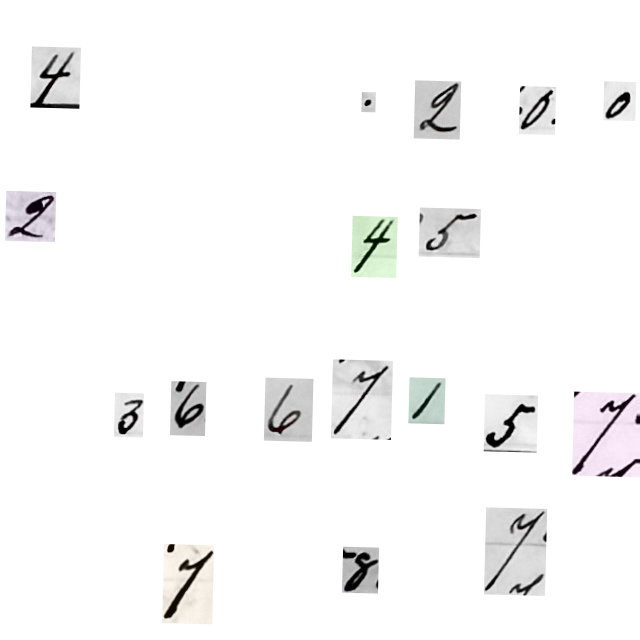 4 . 2 0 0
2 4 5
3 6 6 7 1 5 7
7 8 7